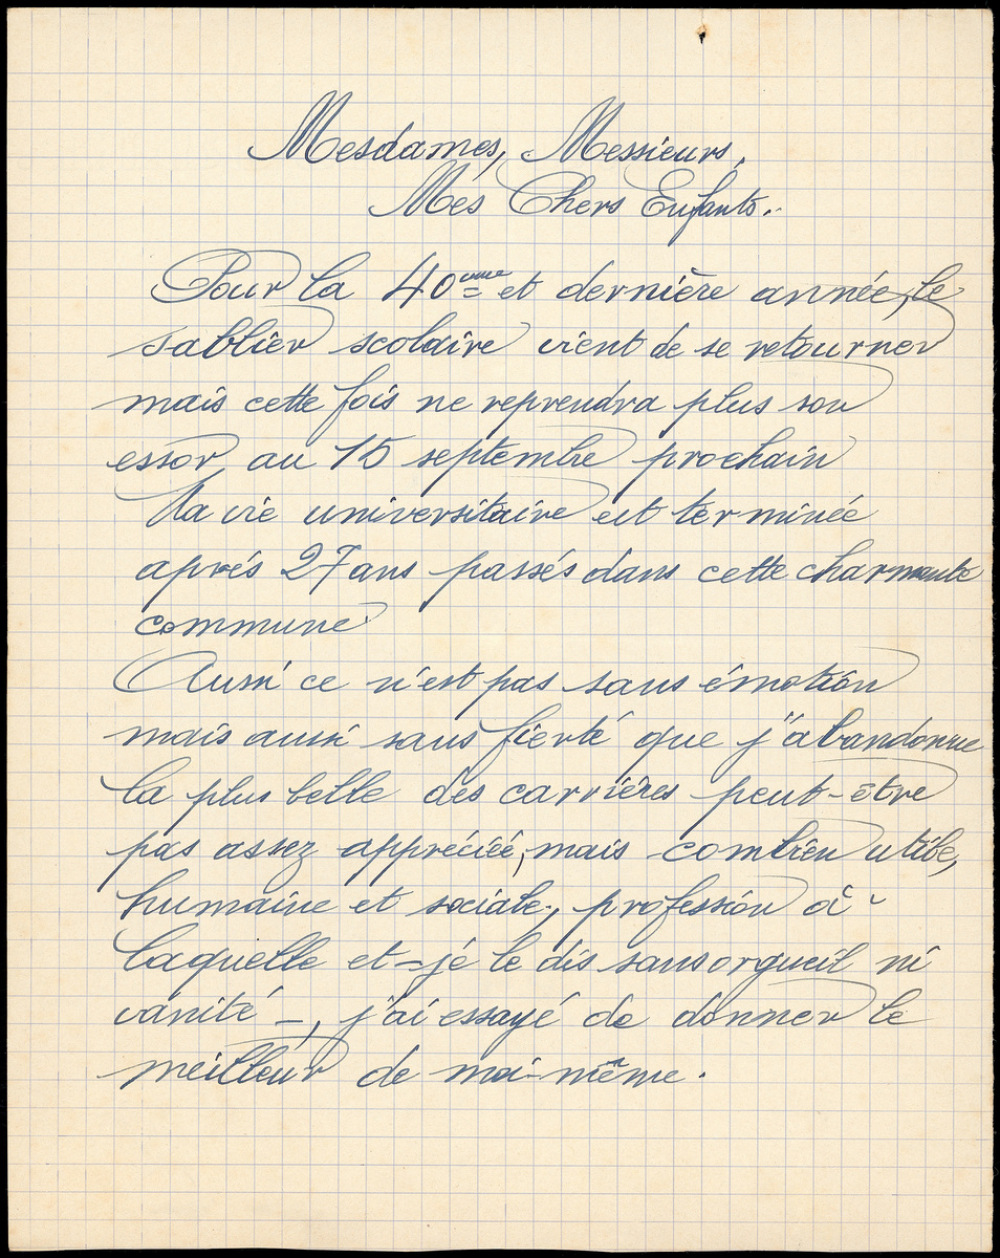 Mesdames, Messieurs,
Mes Chers Enfants.
Pour la 40ème et dernière année, le
sablier scolaire vient de se retourner
mais cette fois ne reprendra plus son
essor au 15 septembre prochain
Ma vie universitaire est terminée
après 27 ans passés dans cette charmante
commune
Aussi ce n'est pas sans émotion
mais aussi sans fierté que j'abandonne
la plus belle des carrières peut-être
pas assez appréciée, mais combien utile,
humaine et sociale, profession à
laquelle et - je le dis sans orgueil ni
vanité -, j'ai essayé de donner le
meilleur de moi-même.